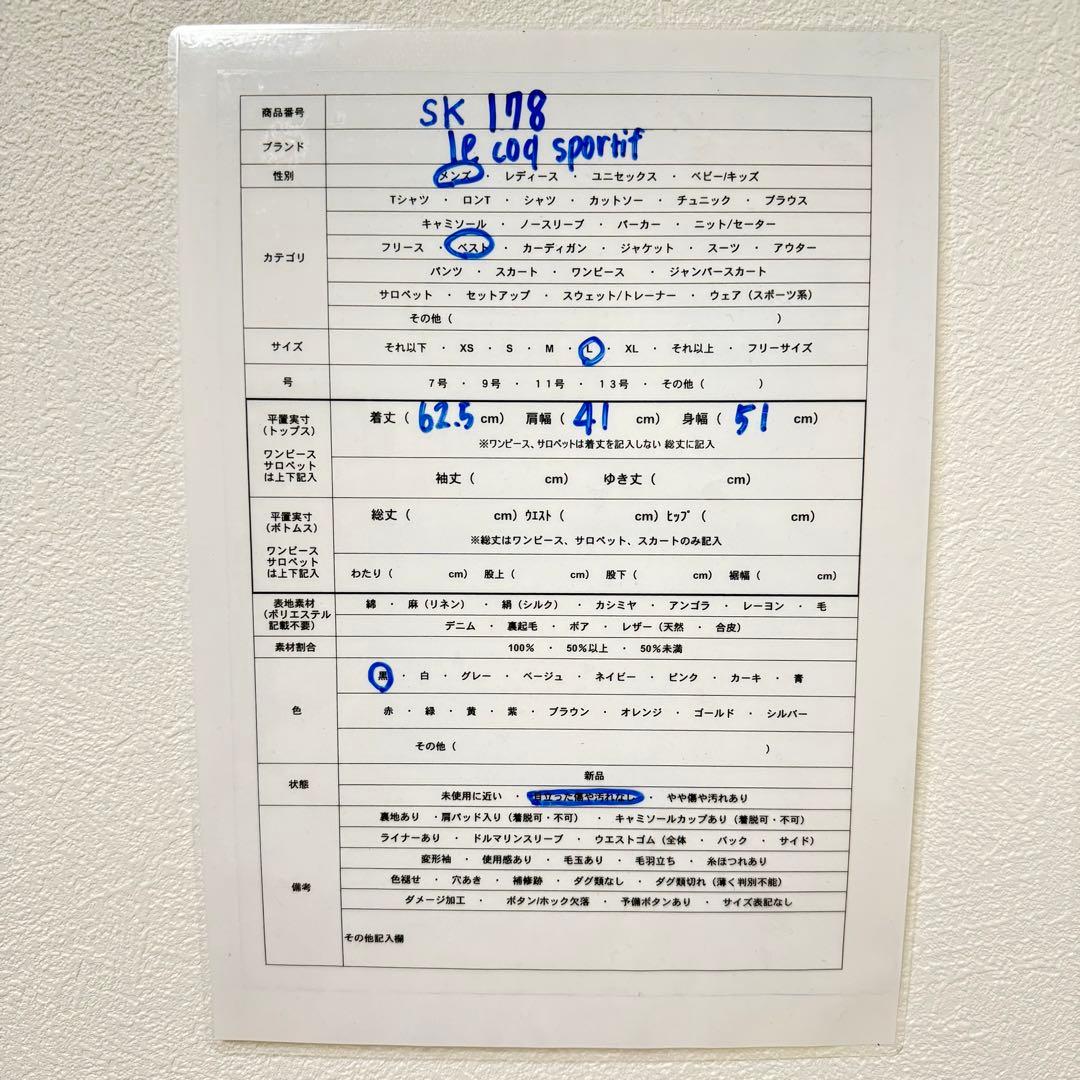 商品番号 SK 178
ブランド le coq sportif
性別 メンズ ・ レディース ・ ユニセックス ・ ベビー/キッズ
Tシャツ ・ ロンT ・ シャツ ・ カットソー ・ チュニック ・ ブラウス
キャミソール ・ ノースリーブ ・ パーカー ・ ニット/セーター
カテゴリ フリース ・ ベスト ・ カーディガン ・ ジャケット ・ スーツ ・ アウター
パンツ ・ スカート ・ ワンピース ・ ジャンバースカート
サロペット ・ セットアップ ・ スウェット/トレーナー ・ ウェア（スポーツ系）
その他（ ）
サイズ それ以下 ・ XS ・ S ・ M ・ L ・ XL ・ それ以上 ・ フリーサイズ
号 7号 ・ 9号 ・ 11号 ・ 13号 ・ その他（ ）
平置実寸
（トップス）
ワンピース
サロペット
は上下記入
着丈（ 62.5 cm） 肩幅（ 41 cm） 身幅（ 51 cm）
※ワンピース、サロペットは着丈を記入しない 総丈に記入
袖丈（ cm） ゆき丈（ cm）
平置実寸
（ボトムス）
ワンピース
サロペット
は上下記入
総丈（ cm）ｳｴｽﾄ（ cm）ﾋｯﾌﾟ（ cm）
※総丈はワンピース、サロペット、スカートのみ記入
わたり（ cm） 股上（ cm） 股下（ cm） 裾幅（ cm）
表地素材
（ポリエステル
記載不要）
綿 ・ 麻（リネン） ・ 絹（シルク） ・ カシミヤ ・ アンゴラ ・ レーヨン ・ 毛
デニム ・ 裏起毛 ・ ボア ・ レザー（天然 ・ 合皮）
素材割合 100% ・ 50%以上 ・ 50%未満
色 黒 ・ 白 ・ グレー ・ ベージュ ・ ネイビー ・ ピンク ・ カーキ ・ 青
赤 ・ 緑 ・ 黄 ・ 紫 ・ ブラウン ・ オレンジ ・ ゴールド ・ シルバー
その他（ ）
状態 新品
未使用に近い ・ 目立った傷や汚れなし ・ やや傷や汚れあり
備考 裏地あり ・肩パッド入り（着脱可・不可） ・ キャミソールカップあり（着脱可・不可）
ライナーあり ・ ドルマリンスリーブ ・ ウエストゴム（全体 ・ バック ・ サイド）
変形袖 ・ 使用感あり ・ 毛玉あり ・ 毛羽立ち ・ 糸ほつれあり
色褪せ ・ 穴あき ・ 補修跡 ・ タグ類なし ・ タグ類切れ（薄く判別不能）
ダメージ加工 ・ ボタン/ホック欠落 ・ 予備ボタンあり ・ サイズ表記なし
その他記入欄